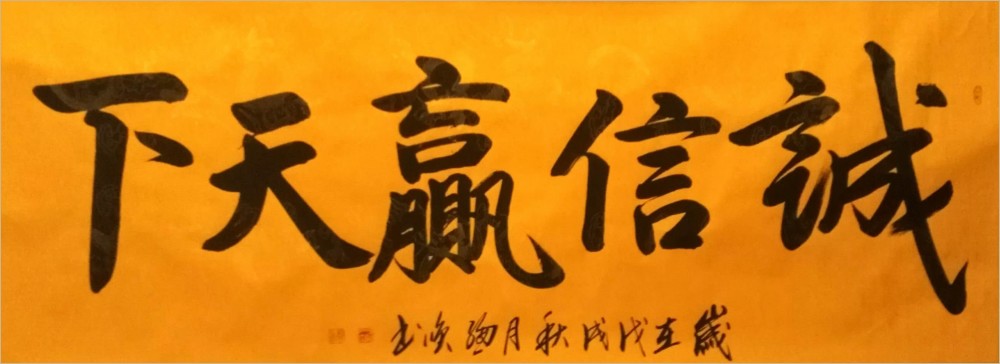 誠信贏天下
歲在戊戌秋月